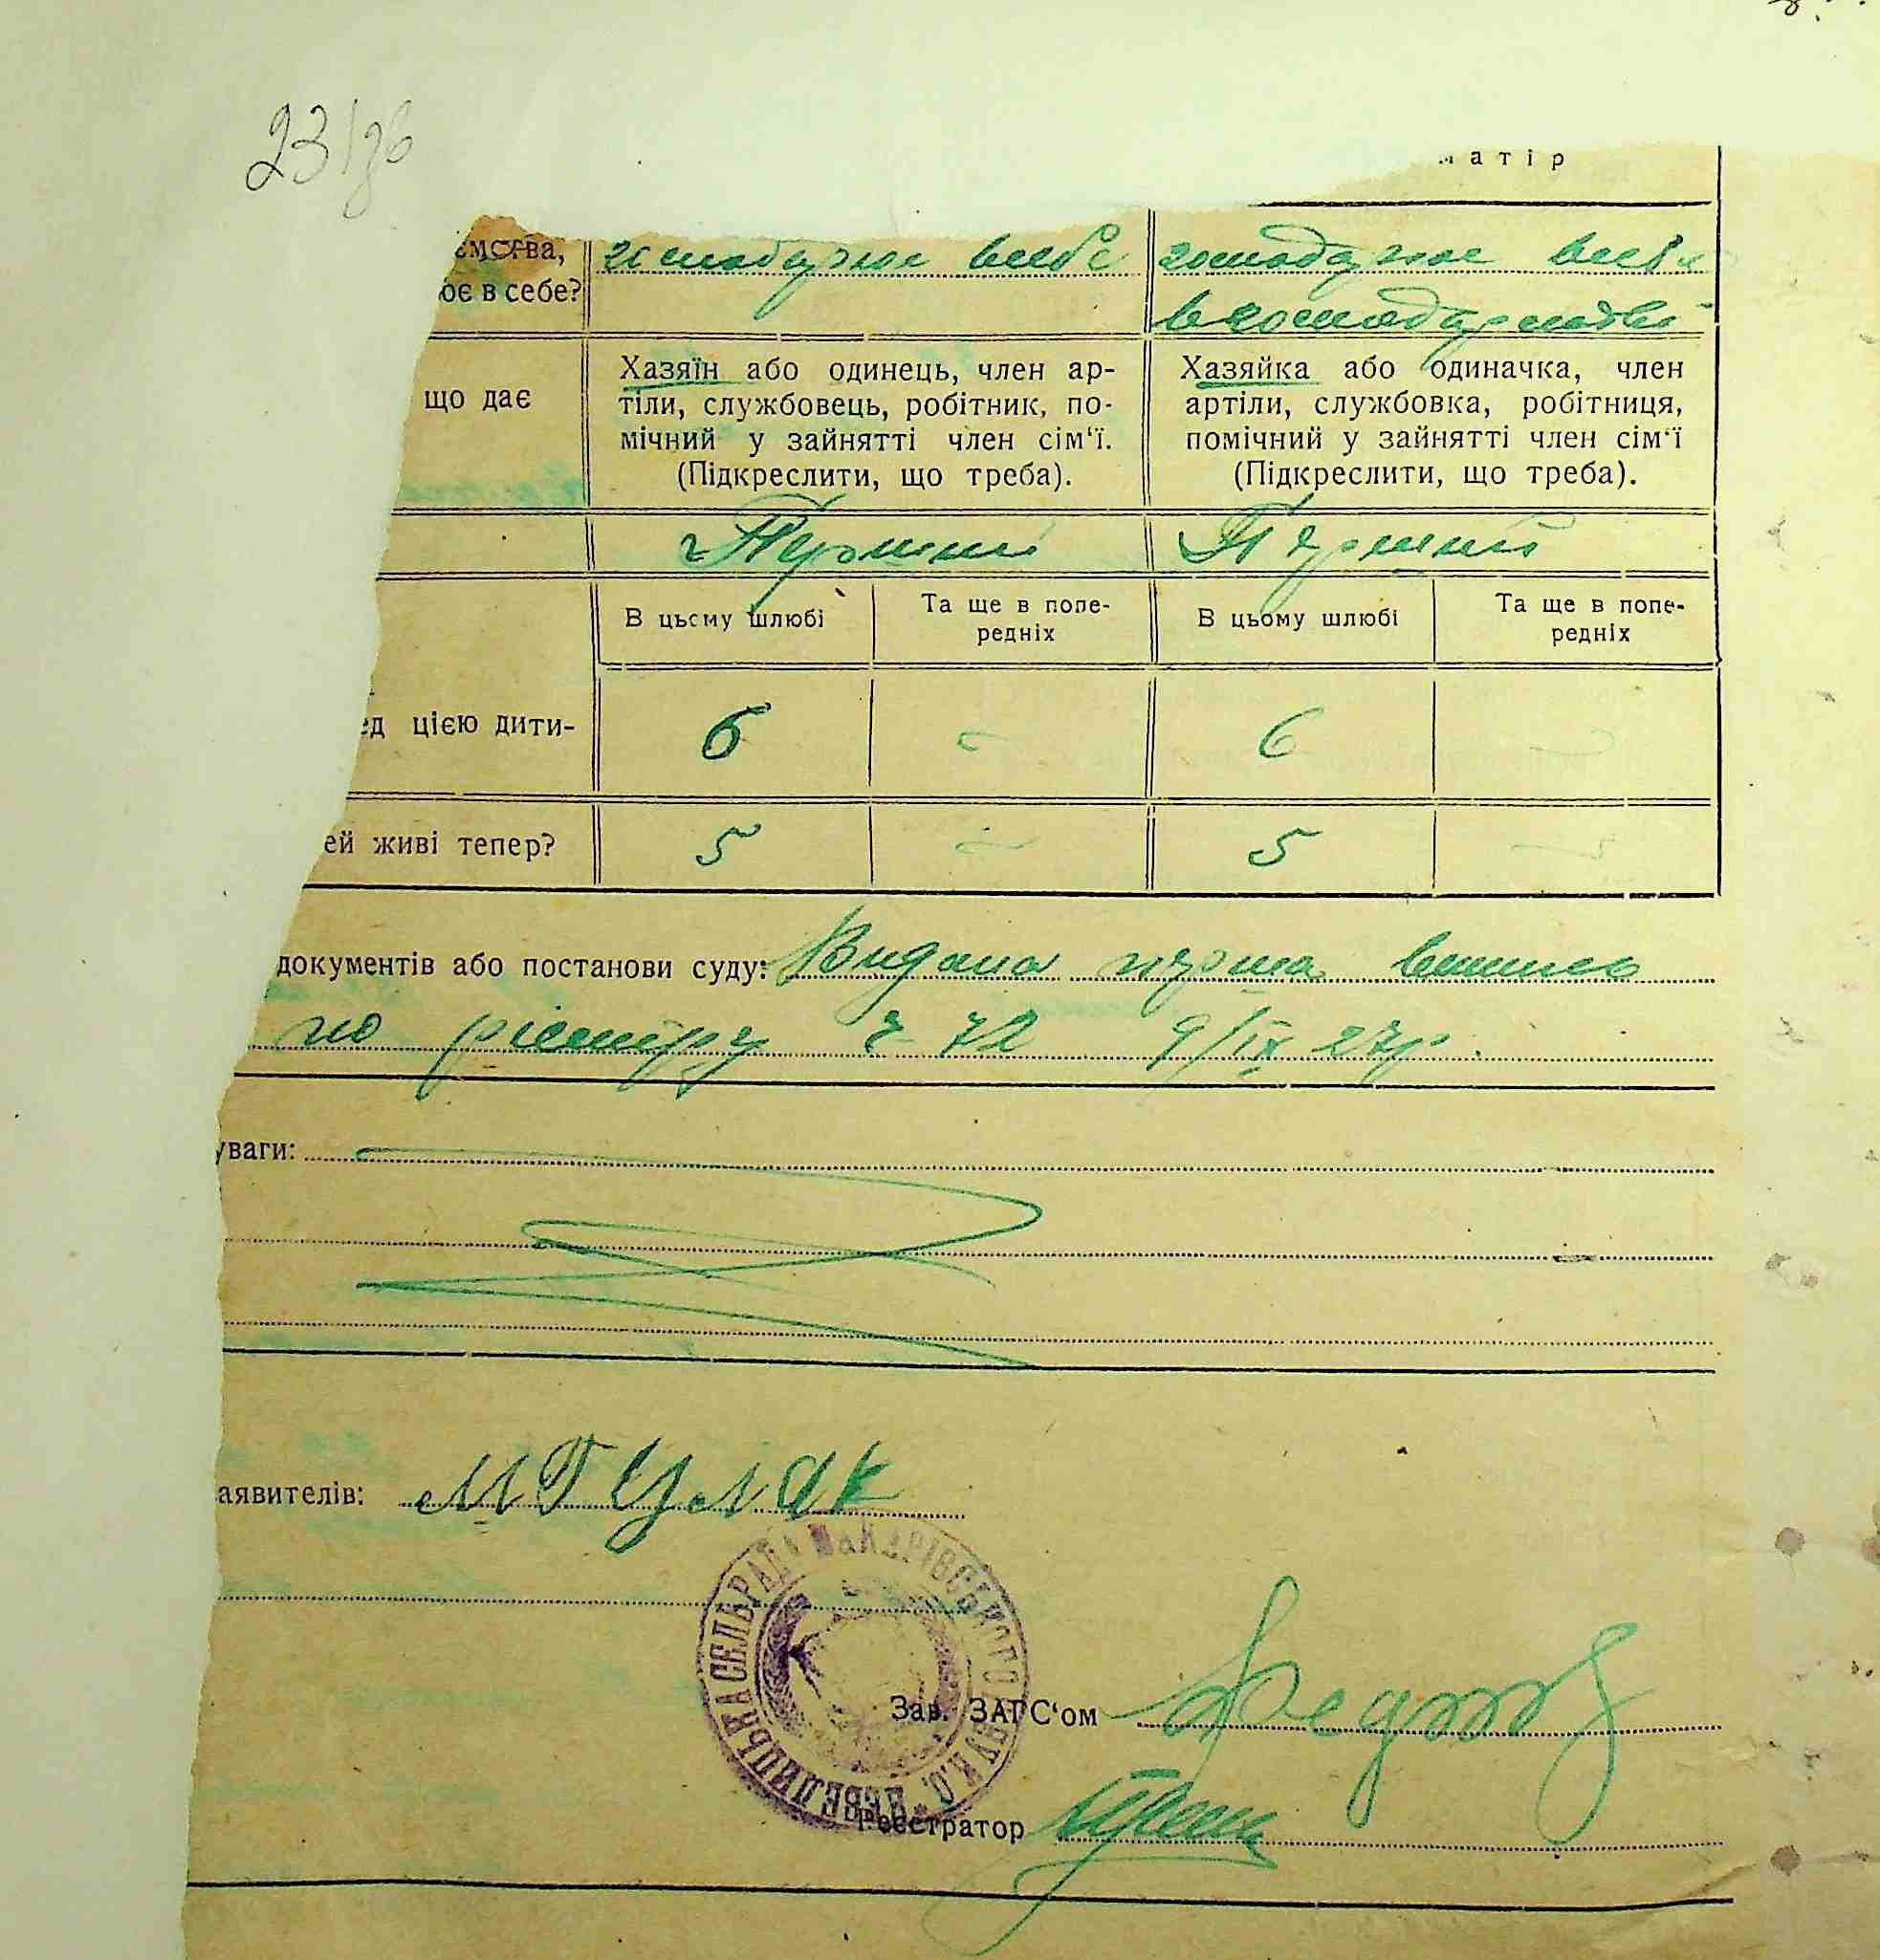 23
матір
ємства,
ює в себе?
що дає
Хазяїн або одинець, член ар-
тіли, службовець, робітник, по-
мічний у зайнятті член сім‘ї.
(Підкреслити, що треба).
Хазяйка або одиначка, член
артіли, службовка, робітниця,
помічний у зайнятті член сім‘ї
(Підкреслити, що треба).
Перший
Перший
В цьому шлюбі
Та ще в попе-
редніх
В цьому шлюбі
Та ще в попе-
редніх
ед цією дити-
6 - 6 -
ей живі тепер?
5 - 5 -
документів або постанови суду: Видана перша випись
по рієстру ч 72 9/IX 27р.
уваги:
аявителів: МГЦМЯК
СЕЛЬРАДА МАКАРІВСЬКОГО
Зав. ЗАГС‘ом
Реєстратор